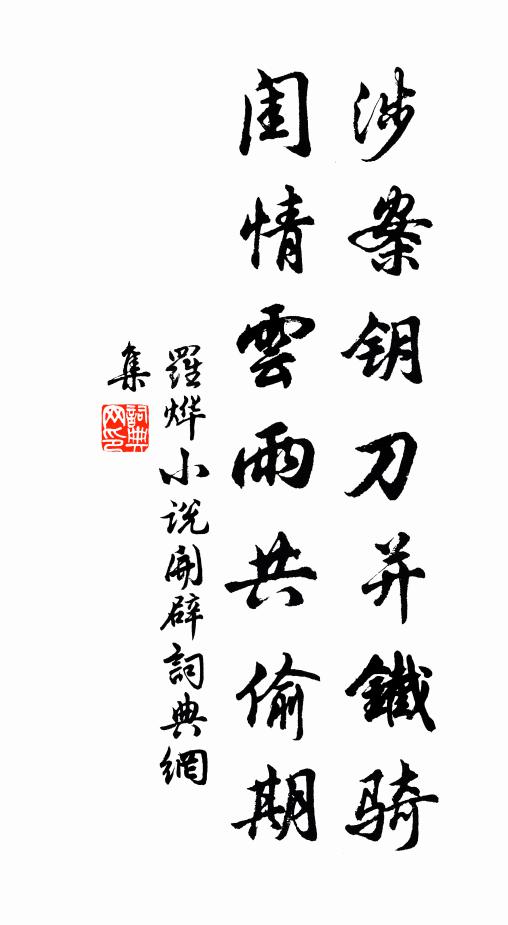 涉案钥刀并鐵骑
闺情雲雨共偷期
羅烨小说開辟詞典網
集
詞典网印